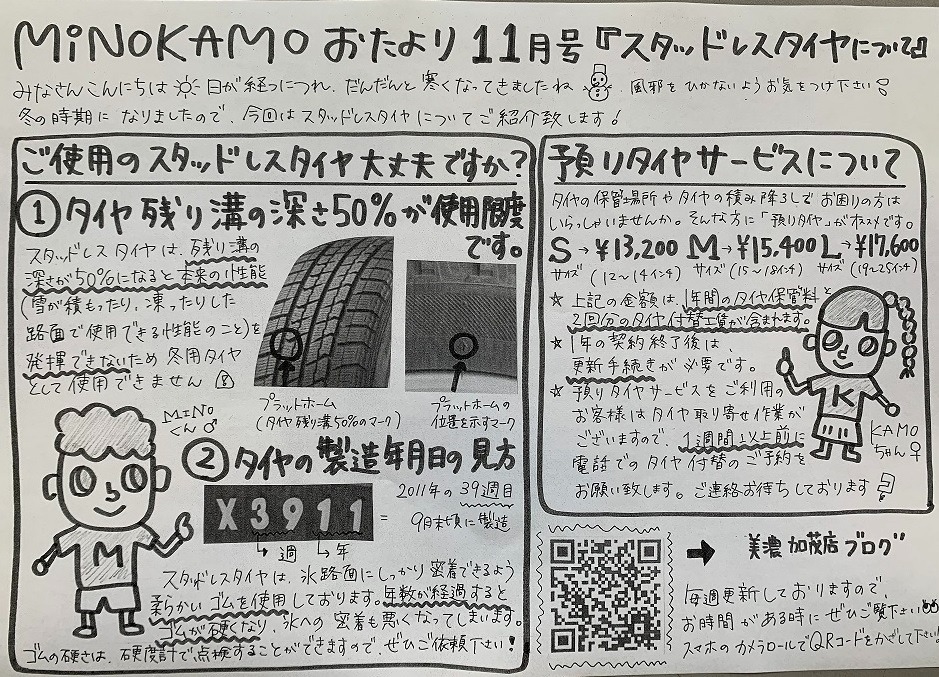 MiNOKAMO おたより 11月号『スタッドレスタイヤについて』
みなさんこんにちは 日が経つにつれ、だんだんと寒くなってきましたね 、風邪をひかないようお気をつけ下さい!
冬の時期になりましたので、今回はスタッドレスタイヤについてご紹介致します!
ご使用のスタッドレスタイヤ大丈夫ですか?
① タイヤ残り溝の深さ50%が使用限度
です。
スタッドレスタイヤは、残り溝の
深さが50%になると本来の性能
(雪が積もったり、凍ったりした
路面で使用できる性能のこと)を
発揮できないため冬用タイヤ
として使用できません
プラットホーム
(タイヤ残り溝50%のマーク)
プラットホームの
位置を示すマーク
MINO
くん♂
M
② タイヤの製造年月日の見方
X3911
=
2011年の39週目
9月末頃に製造
週 年
スタッドレスタイヤは、氷路面にしっかり密着できるよう
柔らかいゴムを使用しております。年数が経過すると
ゴムが硬くなり、氷への密着も悪くなってしまいます。
ゴムの硬さは、硬度計で点検することができますので、ぜひご依頼下さい!
預りタイヤサービスについて
タイヤの保管場所やタイヤの積み降ろしでお困りの方は
いらっしゃいませんか。そんな方に「預りタイヤ」がオススメです。
S→¥13,200 M→¥15,400 L→¥17,600
サイズ (12〜14インチ) サイズ (15〜18インチ) サイズ (19〜25インチ)
☆ 上記の金額は、1年間のタイヤ保管料と
2回分のタイヤ付替工賃が含まれます。
☆ 1年の契約終了後は、
更新手続きが必要です。
☆ 預りタイヤサービスをご利用の
お客様はタイヤ取り寄せ作業が
ございますので、1週間以上前に
電話でのタイヤ付替のご予約を
お願い致します。ご連絡お待ちしております
K
KAMO
ちゃん♀
➡ 美濃加茂店ブログ
毎週更新しておりますので、
お時間がある時にぜひご覧下さい
スマホのカメラロールでQRコードをかざして下さい!